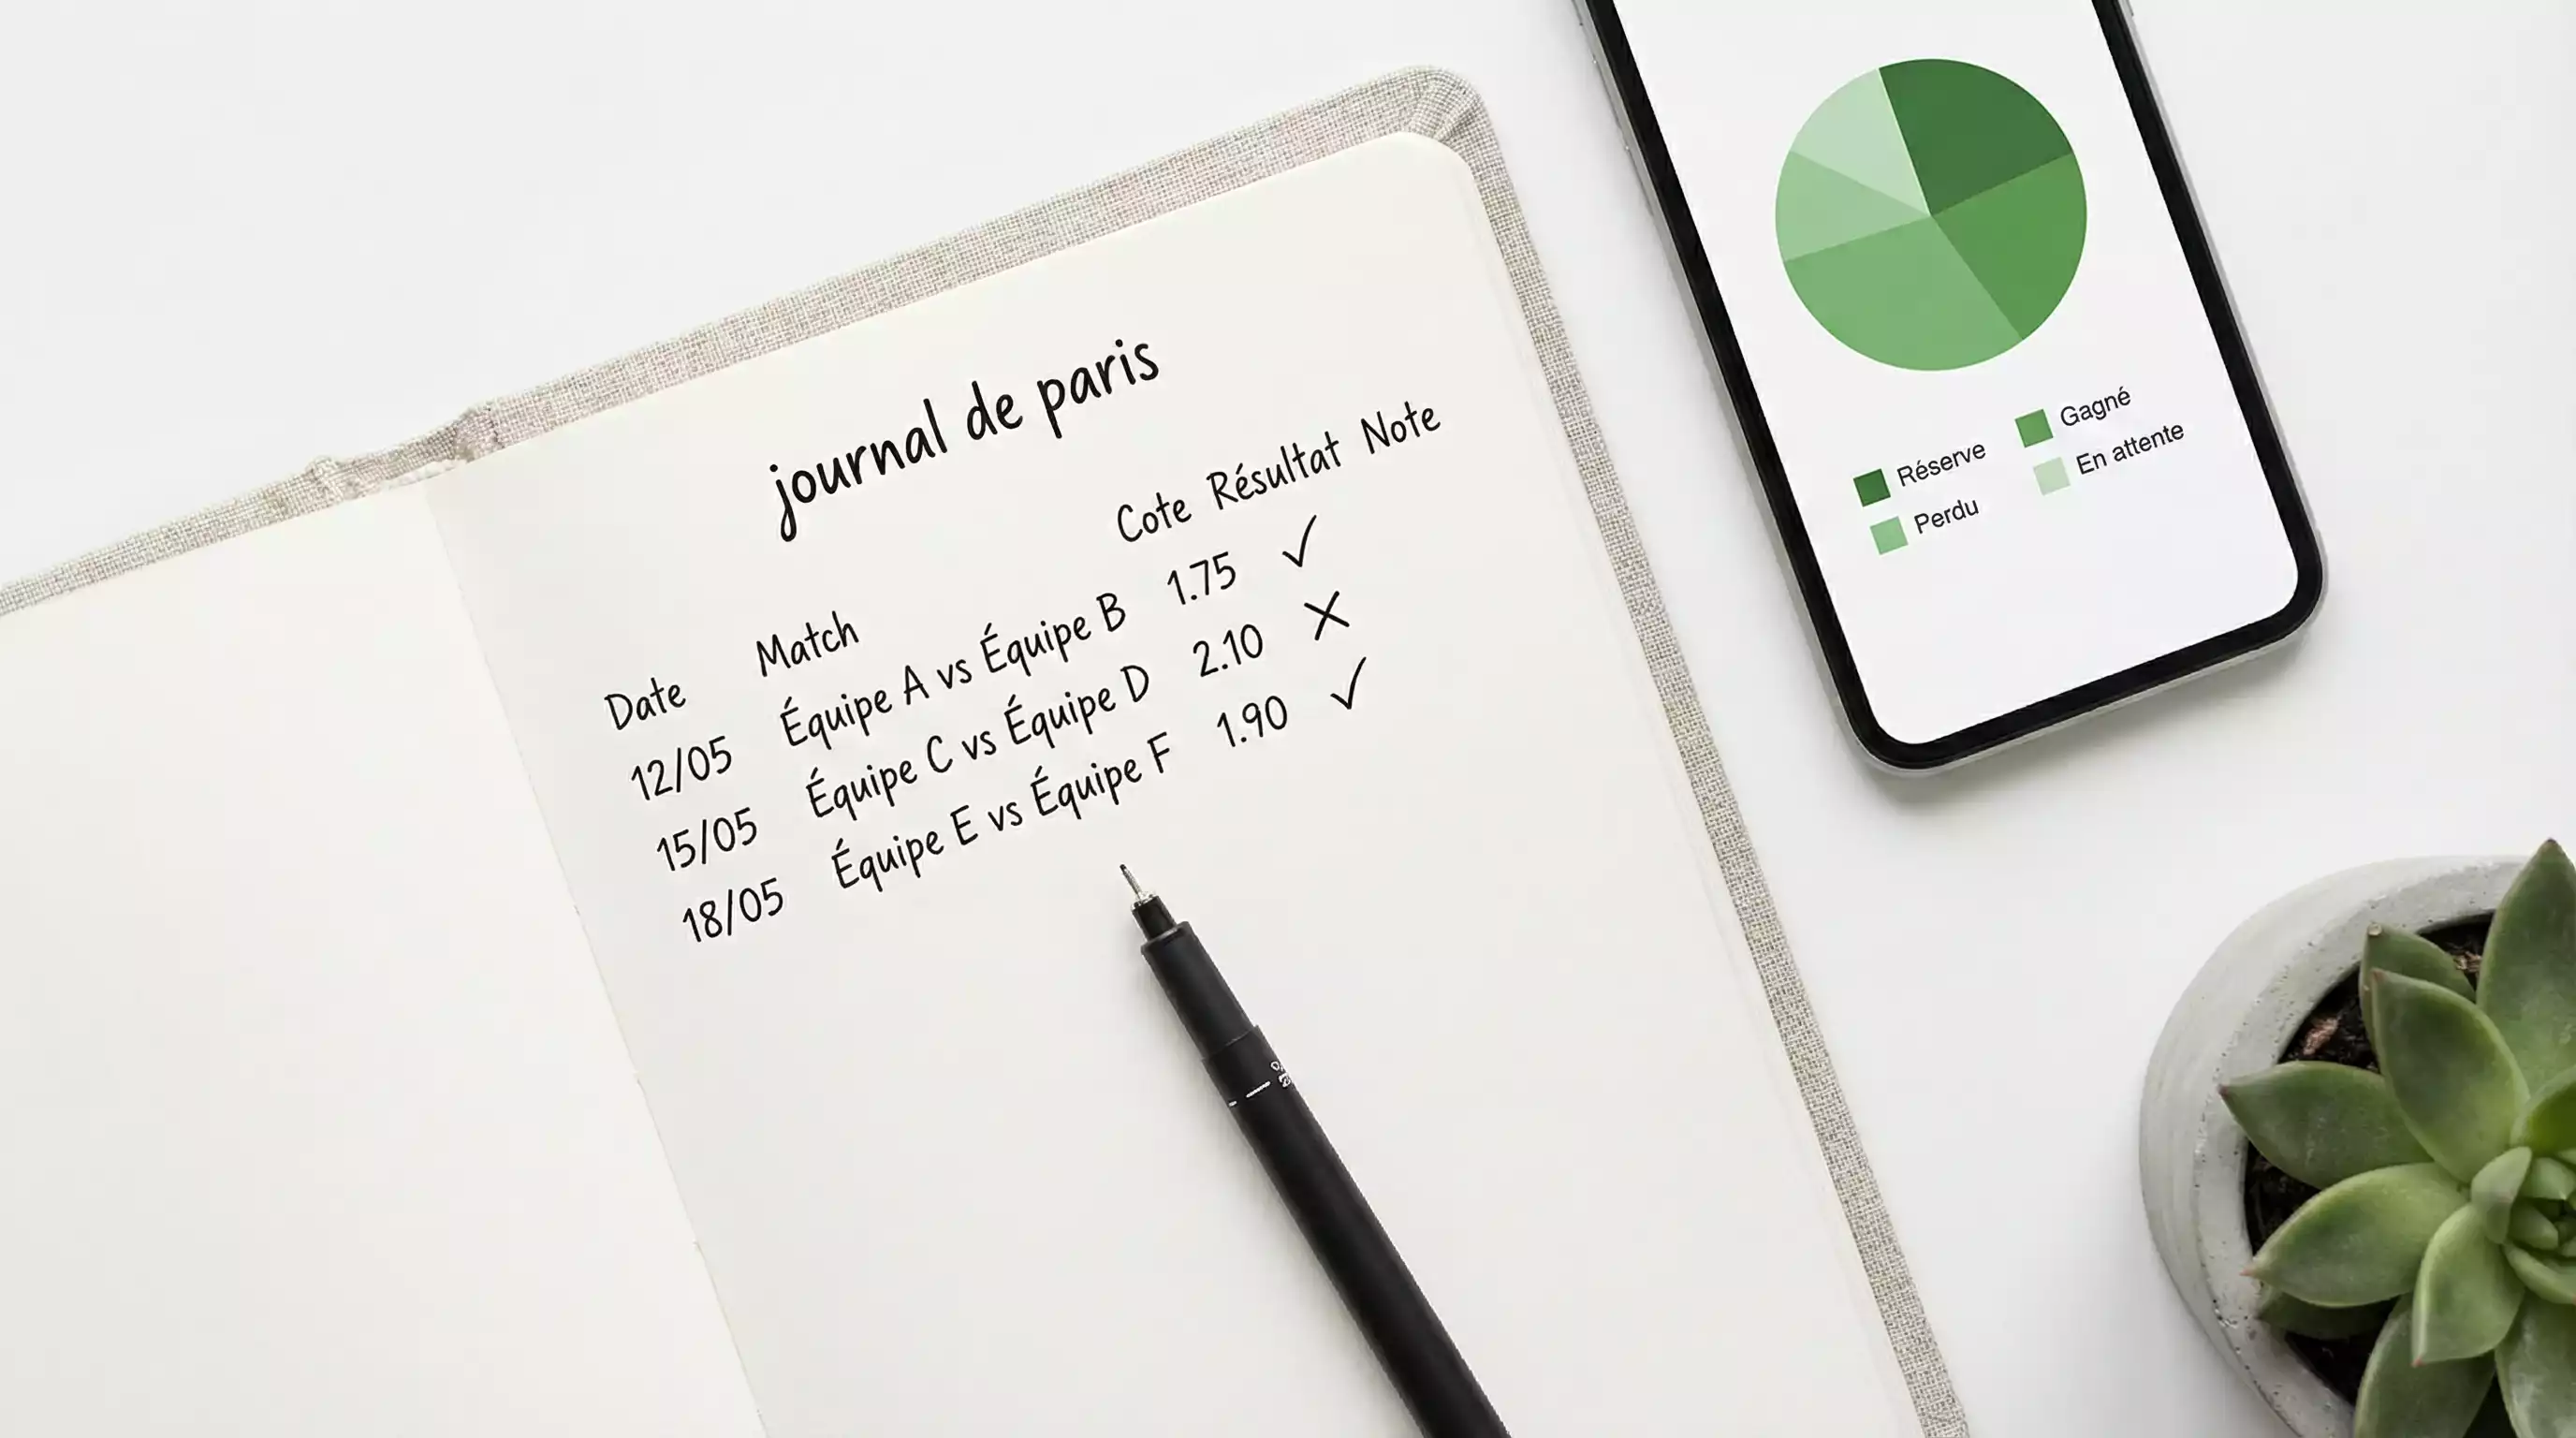 journal de paris
Date Match Cote Résultat Note
12/05 Équipe A vs Équipe B 1.75 ✓
15/05 Équipe C vs Équipe D 2.10 ✗
18/05 Équipe E vs Équipe F 1.90 ✓
Réserve Gagné
Perdu En attente